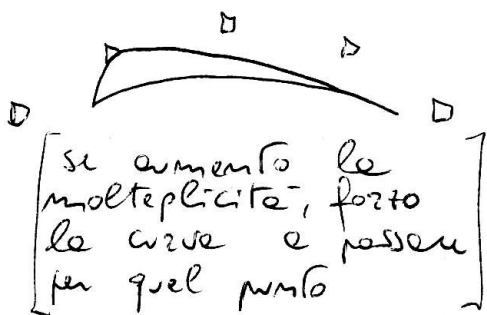 se aumento la
molteplicità, forzo
la curva a passare
per quel punto